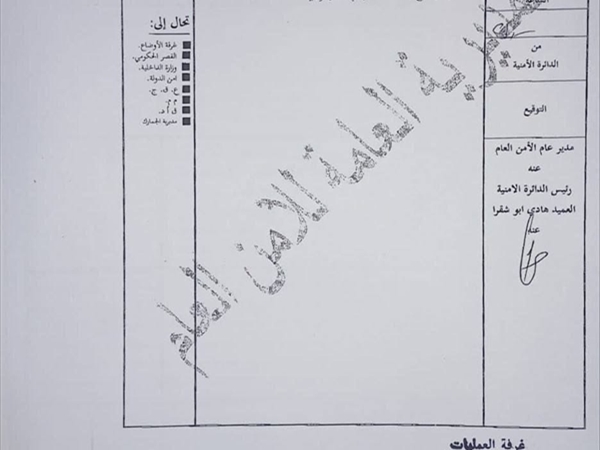 من
الدائرة الأمنية
التوقيع
مدير عام الأمن العام
عنه
رئيس الدائرة الامنية
العميد هادي ابو شقرا
عنه
تحال إلى:
غرفة الأوضاع.
القصر الحكومي.
وزارة الداخلية.
امن الدولة.
ع. ق. ج.
م م.
ق أ د.
مديرية الجمارك
المديرية العامة للامن العام
غرفة العمليات